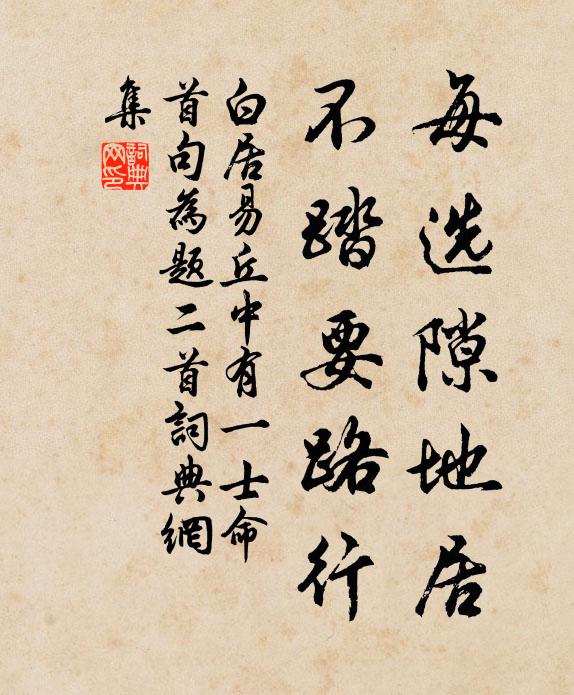 每选隙地居
不踏要路行
白居易丘中有一士命
首句為题二首詞典網
集
詞典網印